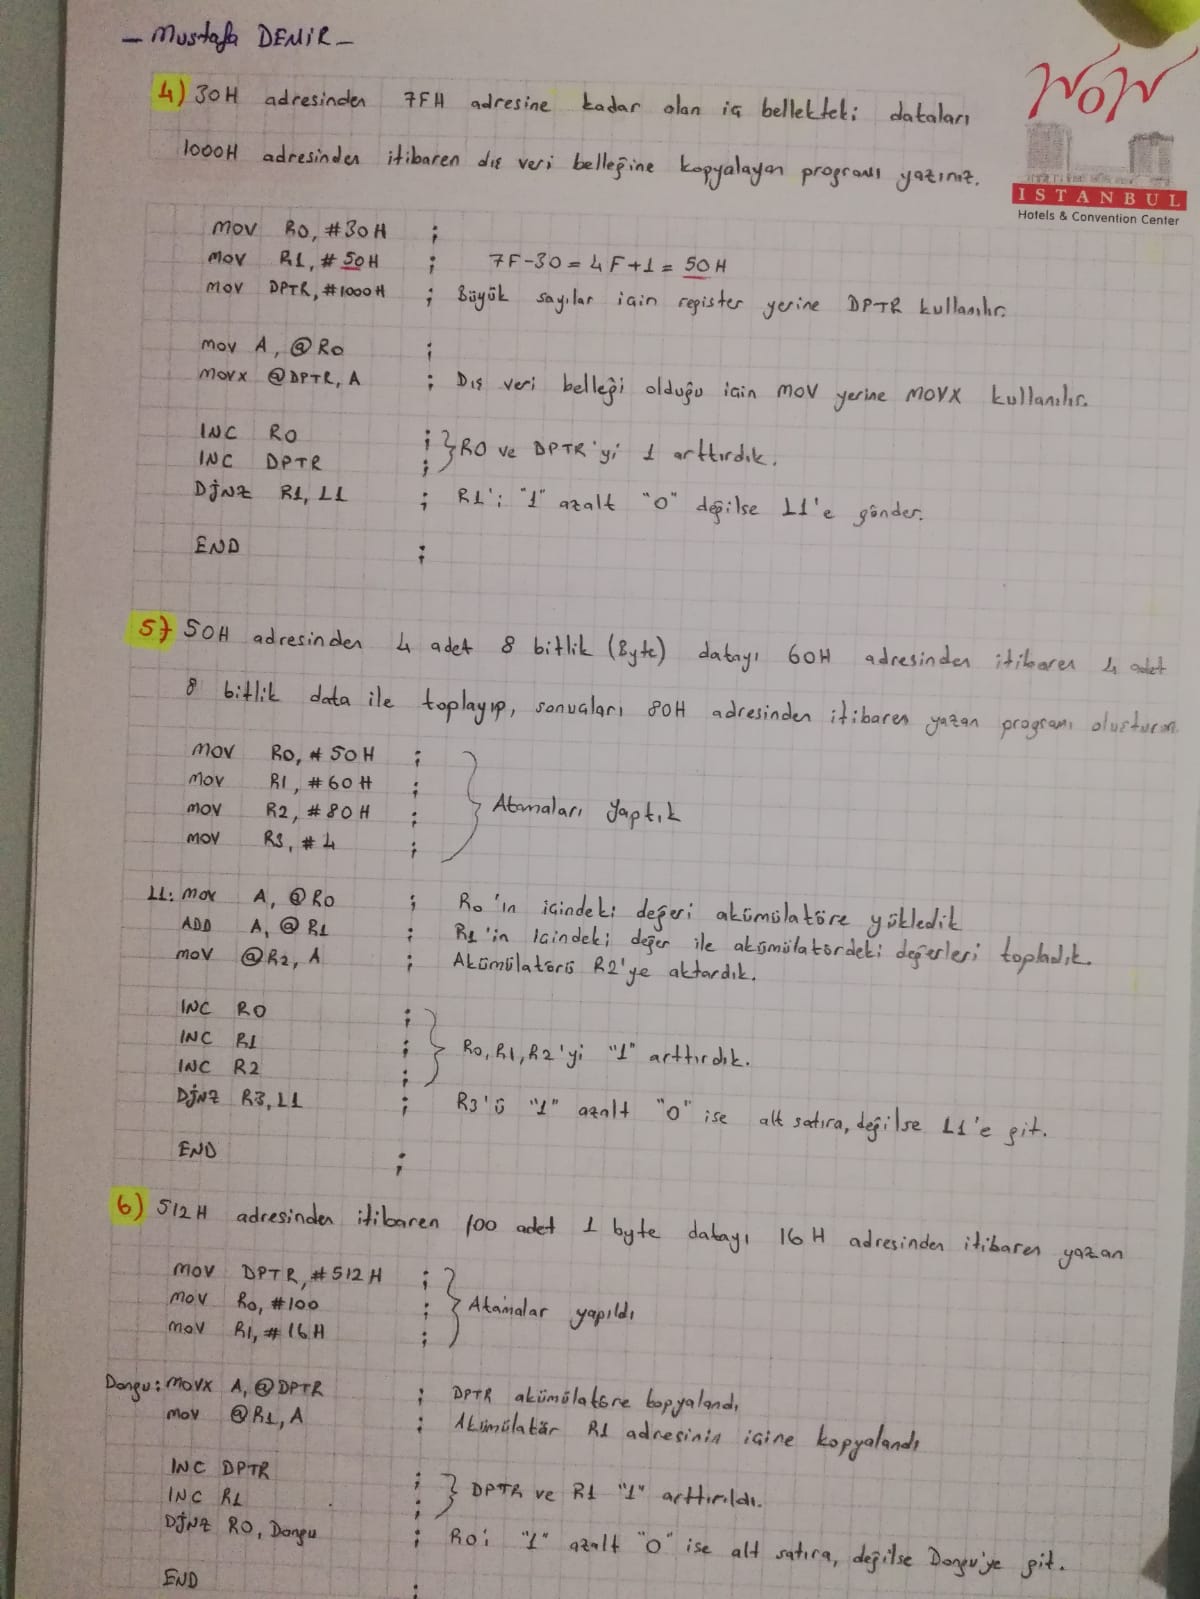 - Mustafa DEMİR -
WOW
ISTANBUL
Hotels & Convention Center
4) 30H adresinden 7FH adresine kadar olan iç bellekteki dataları
1000H adresinden itibaren dış veri belleğine kopyalayan programı yazınız.
MOV R0, #30H ;
MOV R1, #50H ; 7F-30=4F+1=50H
MOV DPTR, #1000H ; Büyük sayılar için register yerine DPTR kullanılır.
MOV A, @R0 ;
MOVX @DPTR, A ; Dış veri belleği olduğu için MOV yerine MOVX kullanılır.
INC R0 ; } R0 ve DPTR'yi 1 arttırdık.
INC DPTR ;
DJNZ R1, L1 ; R1'i "1" azalt "0" değilse L1'e gönder.
END ;
5) 50H adresinden 4 adet 8 bitlik (Byte) datayı 60H adresinden itibaren 4 adet
8 bitlik data ile toplayıp, sonuçları 80H adresinden itibaren yazan programı oluşturun
MOV R0, #50H ;
MOV R1, #60H ;
MOV R2, #80H ; } Atamaları yaptık
MOV R3, #4 ;
L1: MOV A, @R0 ; R0'ın içindeki değeri akümülatöre yükledik
ADD A, @R1 ; R1'in içindeki değer ile akümülatördeki değerleri topladık.
MOV @R2, A ; Akümülatörü R2'ye aktardık.
INC R0 ;
INC R1 ; } R0, R1, R2'yi "1" arttırdık.
INC R2 ;
DJNZ R3, L1 ; R3'ü "1" azalt "0" ise alt satıra, değilse L1'e git.
END ;
6) 512H adresinden itibaren 100 adet 1 byte datayı 16H adresinden itibaren yazan
MOV DPTR, #512H ;
MOV R0, #100 ; } Atamalar yapıldı
MOV R1, #16H ;
Dongu: MOVX A, @DPTR ; DPTR akümülatöre kopyalandı
MOV @R1, A ; Akümülatör R1 adresinin içine kopyalandı
INC DPTR ; } DPTR ve R1 "1" arttırıldı.
INC R1 ;
DJNZ R0, Dongu ; R0'i "1" azalt "0" ise alt satıra, değilse Dongu'ye git.
END ;